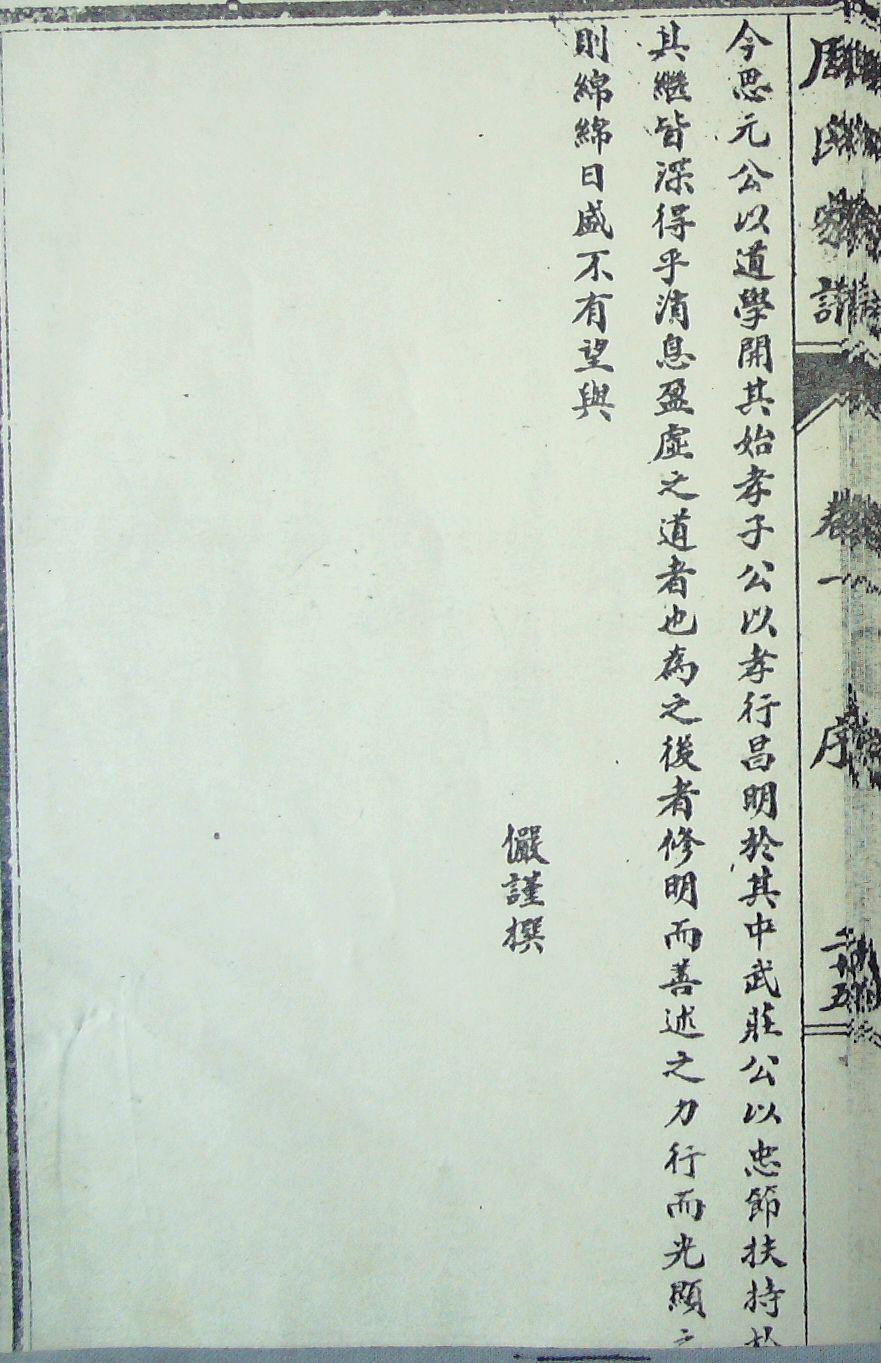 周氏家譜 卷一 序 二十五
今思元公以道學開其始孝子公以孝行昌明於其中武莊公以忠節扶持於
其繼皆深得乎消息盈虛之道者也為之後者修明而善述之力行而光顯之
則綿綿日盛不有望與
儼謹撰